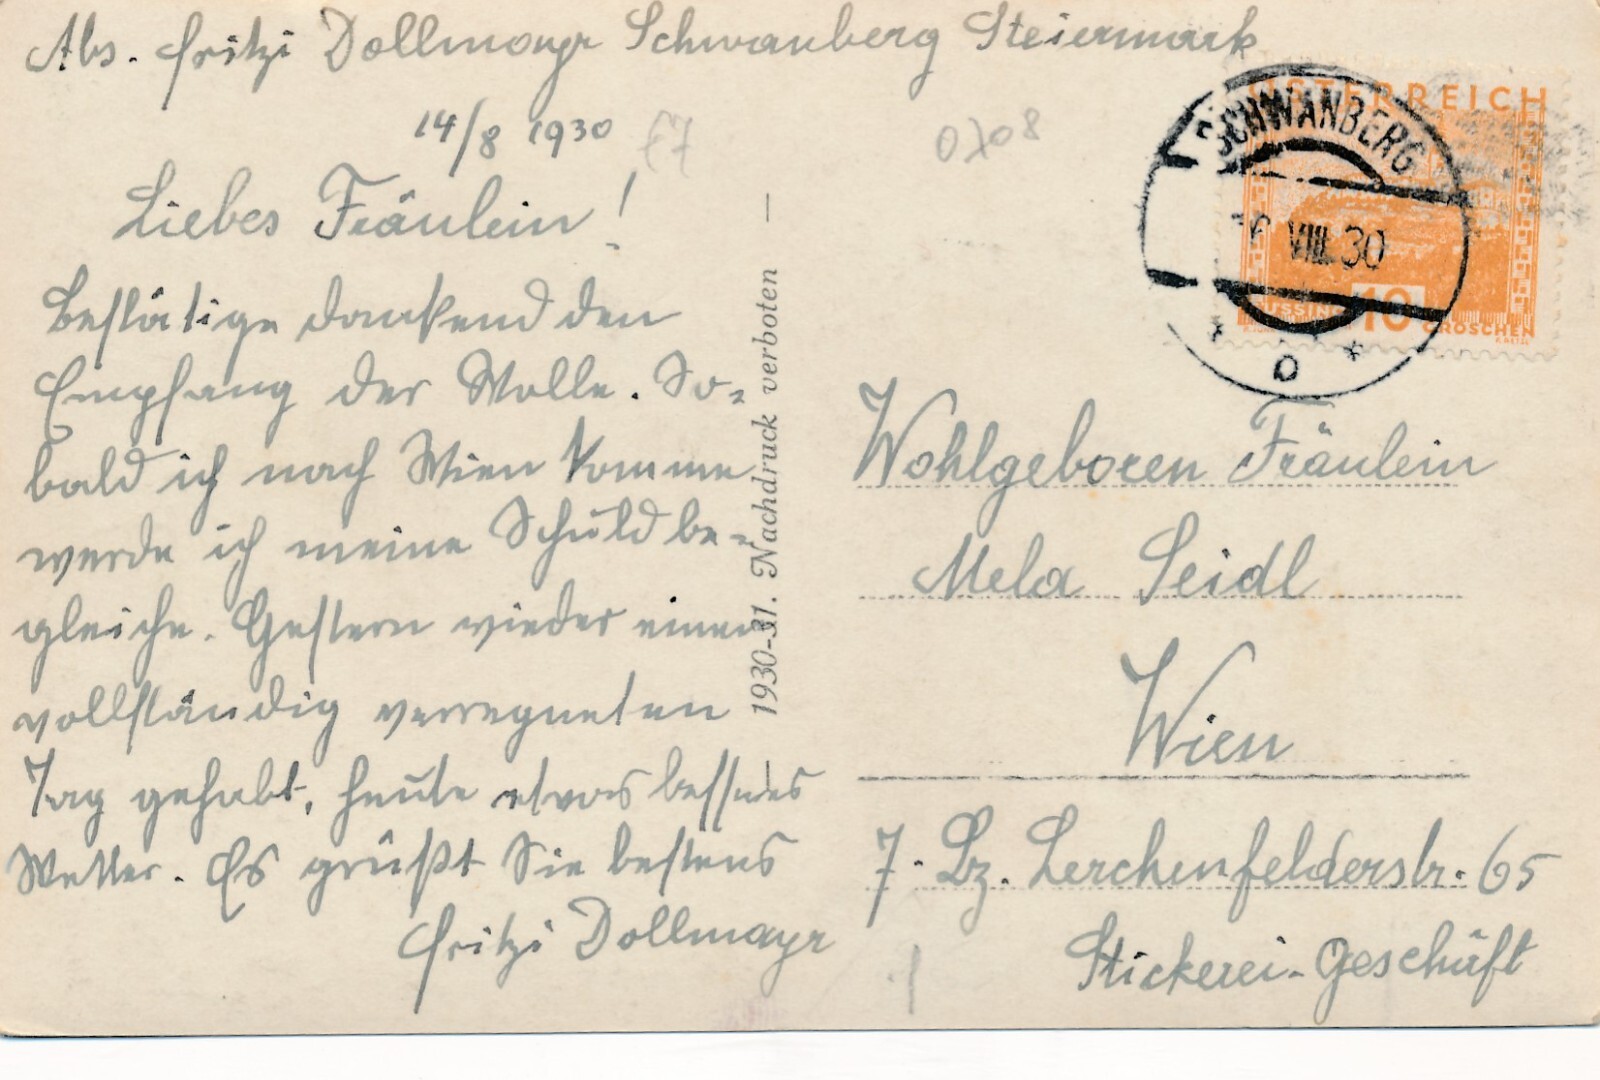 Abs. Fritzi Dollmayr Schwanberg Steiermark
14/8 1930
Liebes Fräulein!
Bestätige dankend den
Empfang der Wolle. So-
bald ich nach Wien komme
werde ich meine Schuld be-
gleiche. Gestern wieder einen
vollständig verregneten
Tag gehabt, heute etwas besseres
Wetter. Es grüßt Sie bestens
Fritzi Dollmayr
1930-31. Nachdruck verboten
ÖSTERREICH
10
GROSCHEN
SCHWANBERG
VIII 30
Wohlgeboren Fräulein
Mela Seidl
Wien
7. Bz. Lerchenfelderstr. 65
Stickerei-Geschäft